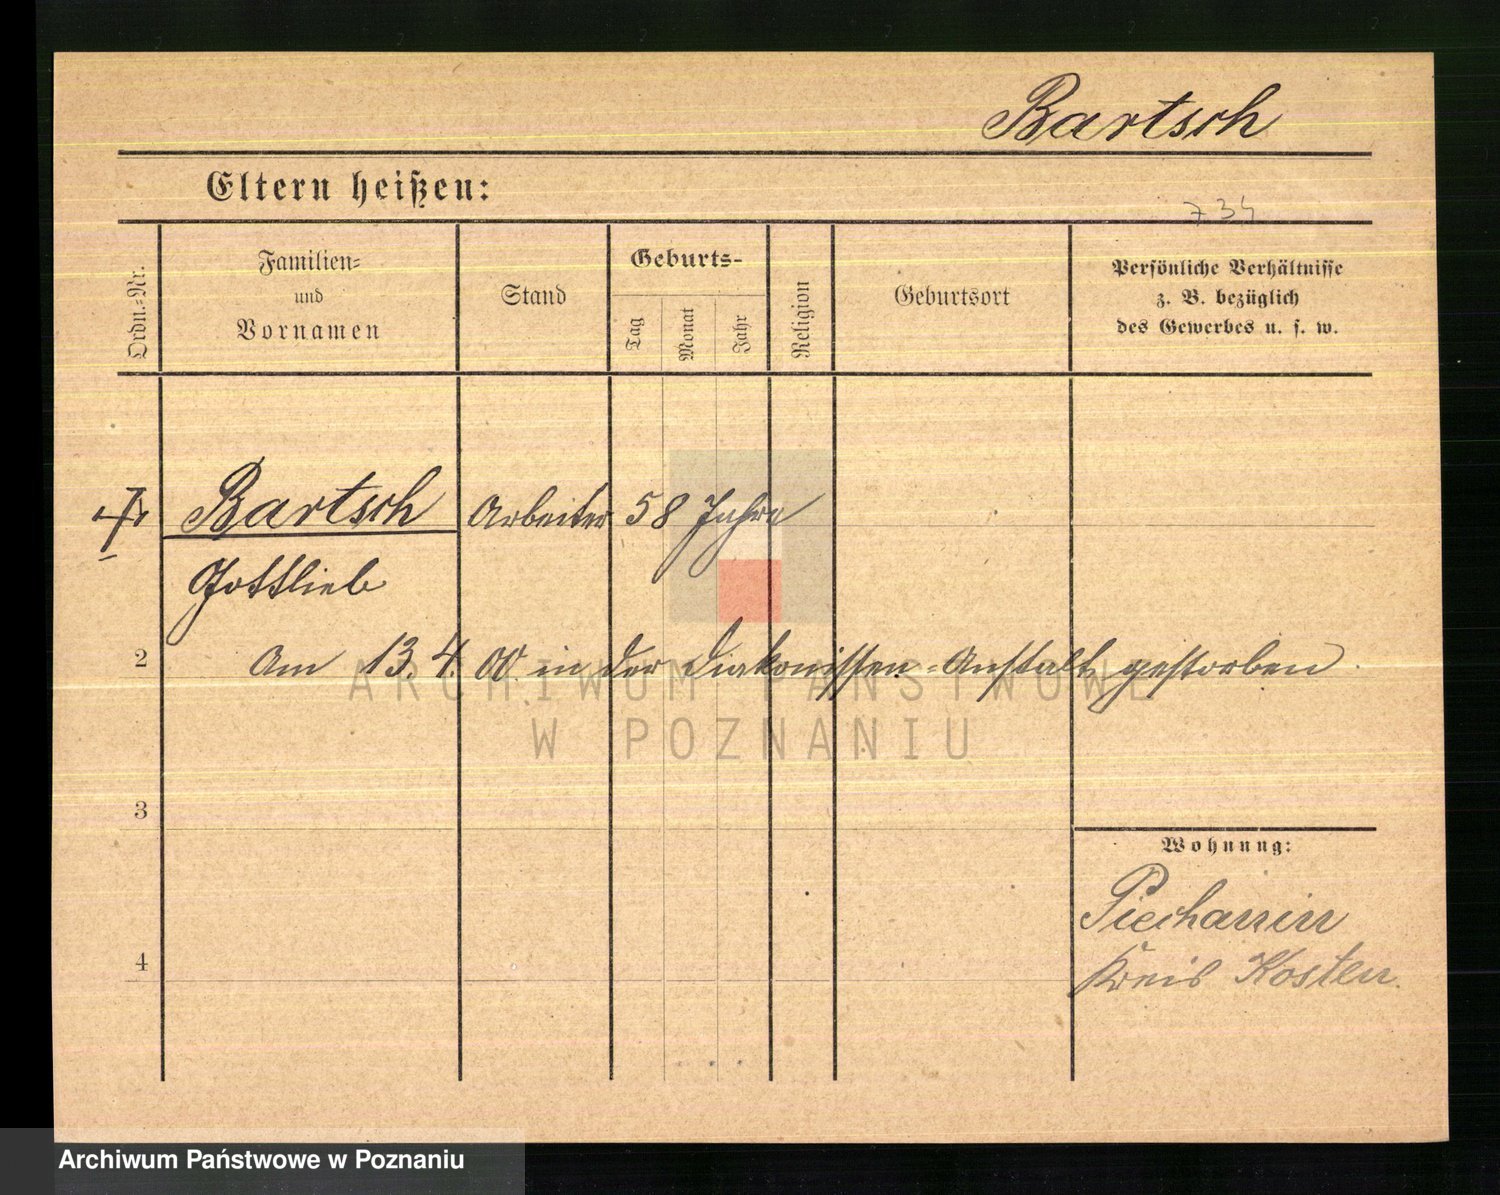 Bartsch
Eltern heißen:
734
Ordn.=Nr.
Familien=
und
Vornamen
Stand
Geburts-
Tag
Monat
Jahr
Religion
Geburtsort
Persönliche Verhältnisse
z. B. bezüglich
des Gewerbes u. s. w.
Bartsch Arbeiter 58 Jahre
Gottlieb
2
Am 13.4.00. in der Diakonissen=Anstalt gestorben.
ARCHIWUM PAŃSTWOWE
W POZNANIU
3
Wohnung:
Piechanin
4
Kreis Kosten.
Archiwum Państwowe w Poznaniu